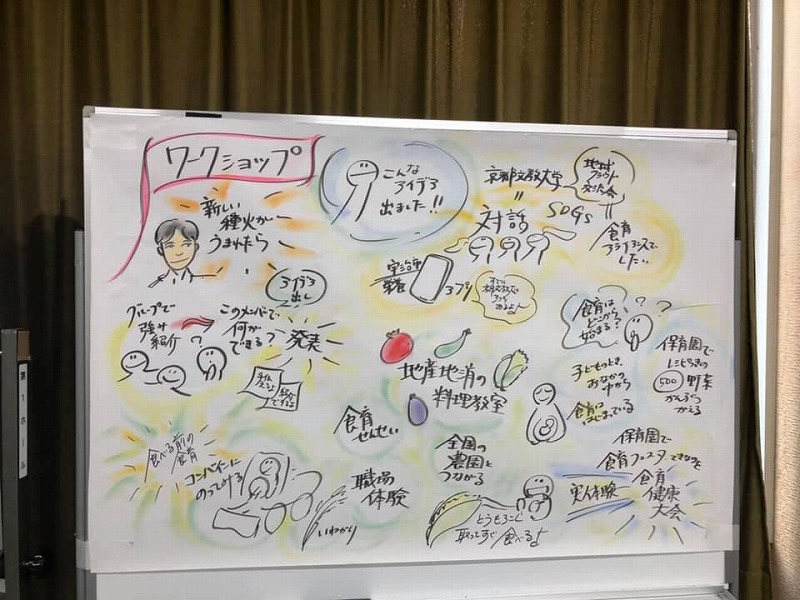 ワークショップ
新しい
種火が
うまれたら
こんな
アイデア
出ました!!
京都文教大学
地域
交流会
対話
SDGs
食育
アライアンスで
したい
アプリ
アイデア
出し
グループで
強み
紹介
このメンバーで
何か
できる?
発表
地産地消の
料理教室
食育は
どこから
始まる?
? ?
子どもっとき
おなかの
中から
食育は
はじまっている
保育園で
500
野菜
かんぶつ
かえる
食育
せんせい
食べる前の
食育
コンバインに
のってける
職場
体験
いねかり
全国の
農園と
つながる
とうもろこし
取ってすぐ食べるよ
保育園で
食育フェスタ
実体験
食育
健康
大会